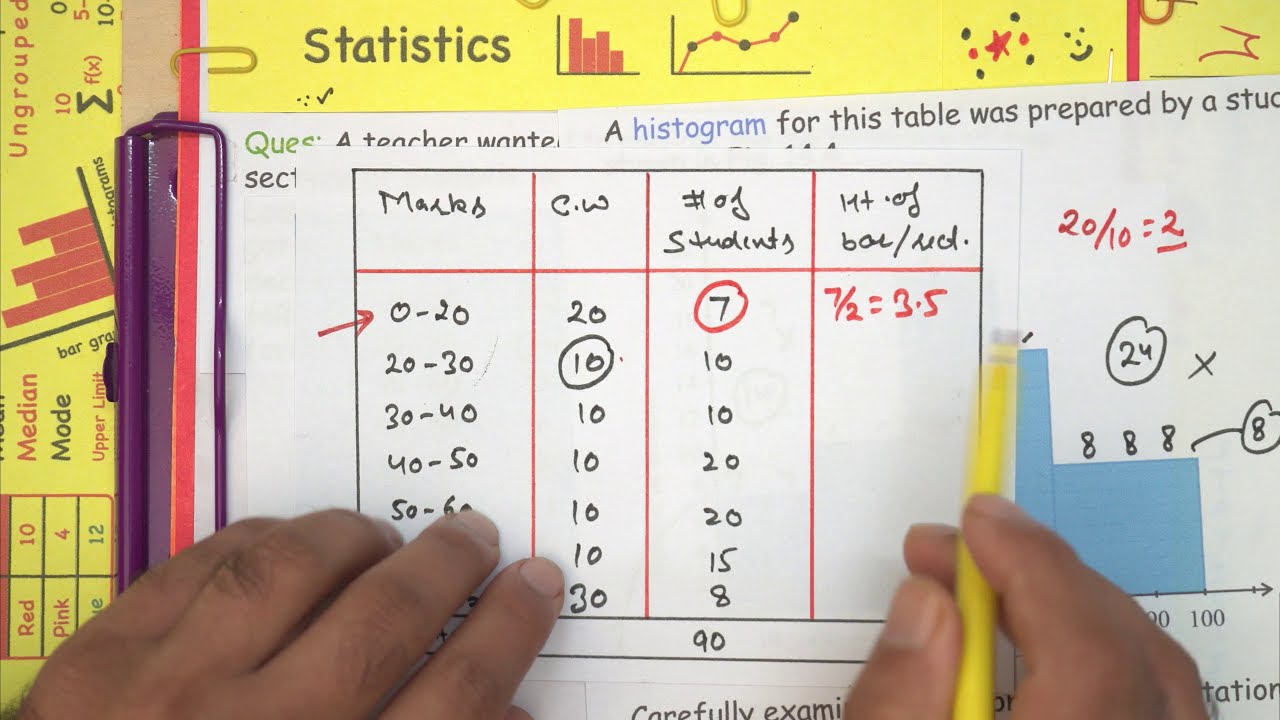 Statistics
Ungrouped
10
∑ f(x)
bar gra
Median
Mode
Upper Limit
Red 10
Pink 4
12
Ques: A teacher wante
sect
A histogram for this table was prepared by a stud
Marks C.W # of Students Ht. of bar/rect.
0-20 20 7 7/2 = 3.5
20-30 10 10
30-40 10 10
40-50 10 20
50-60 10 20
10 15
30 8
90
20/10 = 2
24 ×
8 8 8 8
90 100
Carefully exami